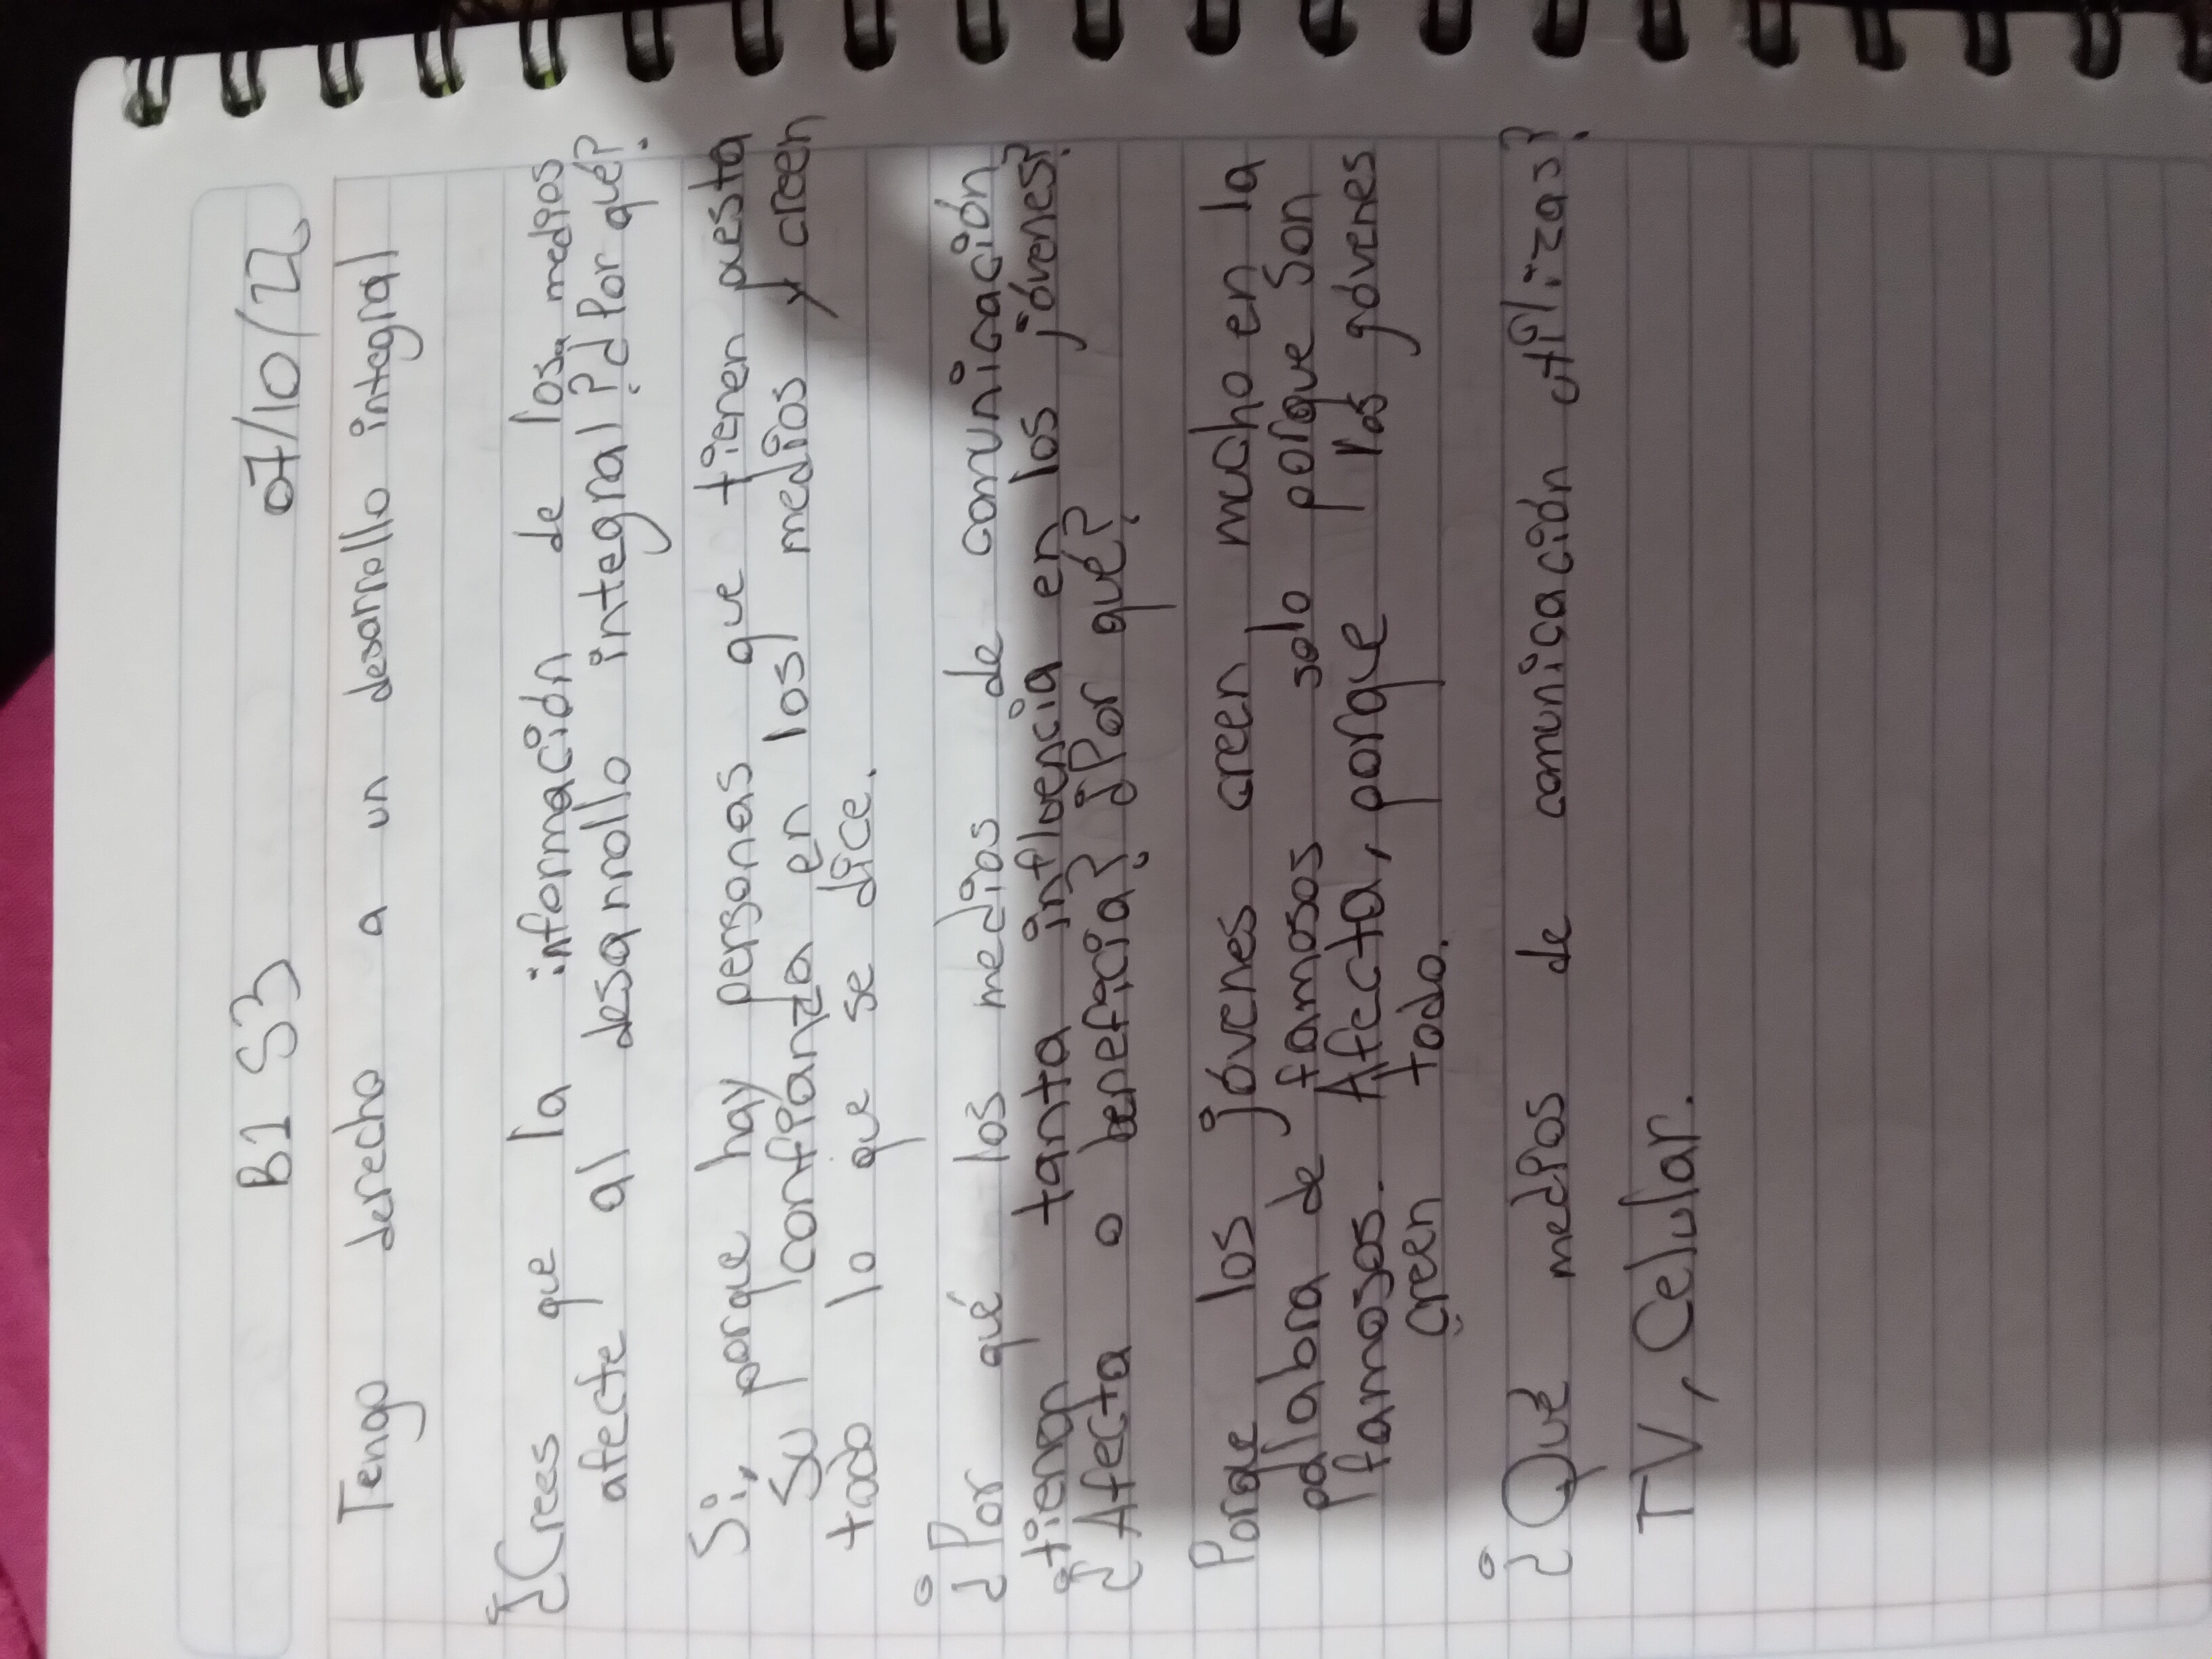 B1 S3 07/10/22
Tengo derecho a un desarrollo integral
¿Crees que la información de los medios
afecte al desarrollo integral? ¿Por qué?
Si, porque hay personas que tienen puesta
su confianza en los medios y creen
todo lo que se dice.
¿Por qué los medios de comunicación
tienen tanta influencia en los jóvenes?
¿Afecta o beneficia? ¿Por qué?
Porque los jóvenes creen mucho en la
palabra de famosos solo porque son
famosos. Afecta, porque los góvenes
creen todo.
¿Qué medios de comunicación utilizas?
TV, Celular.